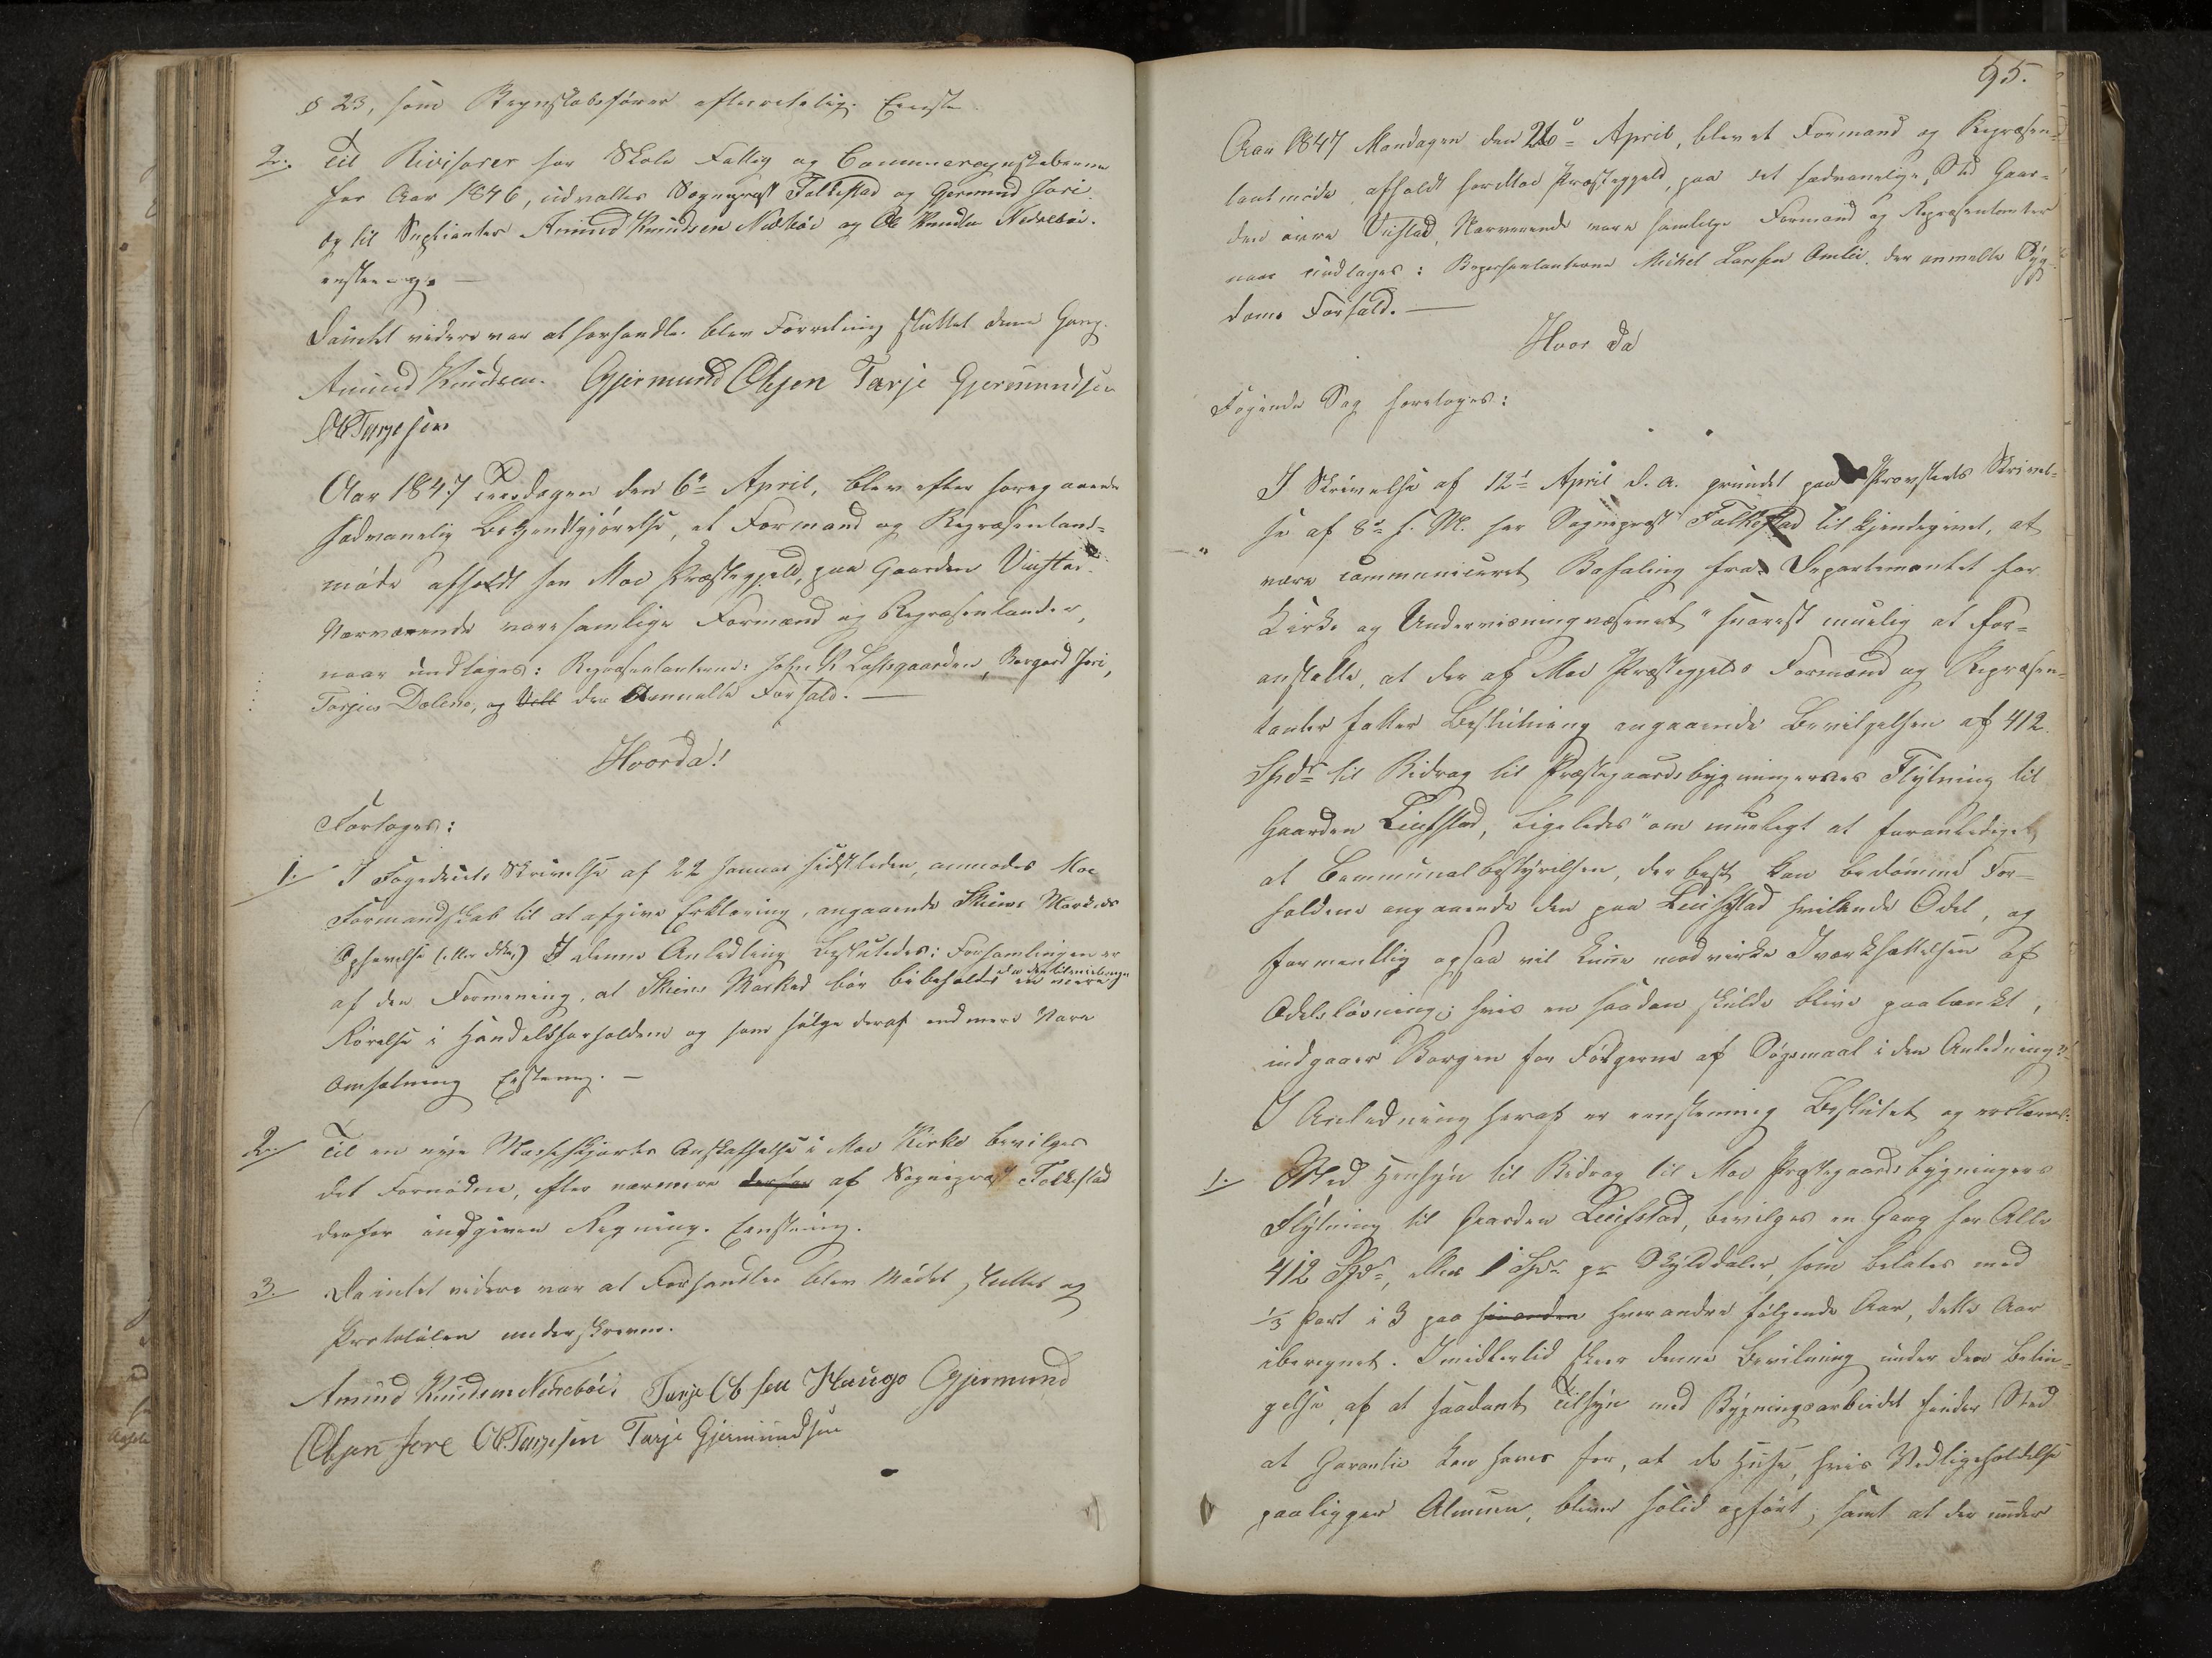 § 23, som Regnskabsfører efterretelig. Eenst.
2. Til Revisorer for Skole Fattig og Communeregnskaberne
for Aar 1846, udvaltes Sognepræst Falkestad og Gjermund Jori
og til Suplianter Amund Knudsen Nedrebøe og Ole Knudsen Nedrebøe.
enstemig. —
Da intet videre var at forhandle blev Forretning sluttet denne Gang.
Amund Knudsen. Gjermund Olsen Tarje Gjermundsen
Ol Tarjesen
Aar 1847 Tirsdagen den 6te April, blev efter foregaaende
sædvanelig Bekjendtgjørelse, et Formand og Repræsentant-
møde afholdt for Moe Præstegjeld, paa Gaarden Viistad.
Nærværende vare samtlige Formænd og Repræsentanter,
naar undtages: Repræsentanterne: John Laftsgaarden, Bergard Jori,
Torjus Dalene, og den Anmeldte Forfald. —
Hvorda!
Fortoges:
1. I Fogderiets Skrivelse af 22 Januar sidstleden, anmodes Moe
Formandskab til at afgive Erklæring, angaaende Skiens Markeds
Ophævelse (eller ikke) I denne Anledling Besluttedes: Forsamlingen er
af den Formening, at Skiens Marked bør bibeholdes da det tilveiebringer en mere
Rørelse i Handelsforholdene og som følge deraf end mere Vare
Omsætning Eenstemig. —
2. Til en nye Messeskjortes Anskaffelse i Moe Kirke bevilges
det Fornødne, efter nærmere af Sognepræst Falkestad
derfor indgiven Regning. Eenstemig.
3. Da intet videre var at Forhandle blev Mødet sluttet og
Protokolen underskreven.
Amund Knudsen Nedrebøe. Tarje Olsen Haugo Gjermund
Olsen Jore Ol. Tarjesen Tarje Gjermundsen
95.
Aar 1847 Mandagen den 26de April, blev et Formand og Repræsen-
tantmøde, afholdt for Moe Præstegjeld, paa det sædvanelige Sted Gaar-
den øvre Viistad, Nærværende vare samtlige Formænd og Repræsentanter
naar undtages: Repræsentanterne Mikkel Larsen Omlie, der anmeldte Syg-
doms Forfald. —
Hvor da
Føgende Sag foretoges:
I Skrivelse af 12te April d. A. grundet paa Provstens Skrivel-
se af 8de s. M. har Sognepræst Falkestad tilkjendegivet, at
være communiceret Befaling fra Departementet for
Kirke og Underviisningvæsenet "snarest muelig at for-
anstalte, at der af Moe Præstegjelds Formænd og Repræsen-
tanter fattes Beslutning angaaende Bevilgelsen af 412
Spdr til Bidrag til Præstegaardsbygningernes Flytning til
Gaarden Liufstad, Ligeledes "om mueligt at foranlediget
at Communalbestyrelsen, der best kan bedømme For-
holdene angaaende den paa Liufstad hvilende Odel, og
formentlig ogsaa vil kunne modvirke Iværksættelsen af
Odelsløsning, hvis en saadan skulde blive paatænkt,
indgaaer Borgen for Følgerne af Søgsmaal i den Anledning".
I Anledning heraf er eenstemig Besluttet og erklæret:
1. Med Hensyn til Bidrag til Moe Præstegaards bygningers
Flytning til Gaarden Liufstad, bevilges en Gang for Alle
412 Spdr, eller 1 Spdr pr Skylddaler, som betales med
1/3 Part i 3 paa hverandre følgende Aar, dette Aar
iberegnet. Imidlertid skeer denne Bevilning under den Betin-
gelse, af at saadant Tilsyn med Bygningsarbeidet finder Sted
at Garantie kan haves for, at de Huse, hvis Vedligeholdelse
paaligger Almuen, bliver solid opført, samt at der under